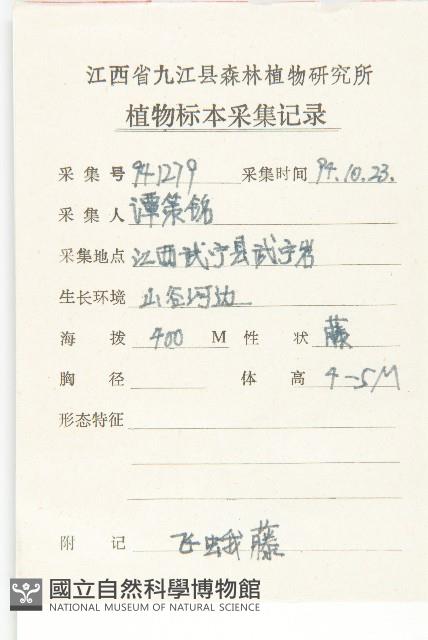 江西省九江县森林植物研究所
植物标本采集记录
采集号 941279 采集时间 94.10.23.
采集人 谭策铭
采集地点 江西武宁县武宁岩
生长环境 山谷河边
海拨 400 M 性状 藤
胸径 体高 4-5M
形态特征
附记 飞蛾藤
國立自然科學博物館
NATIONAL MUSEUM OF NATURAL SCIENCE